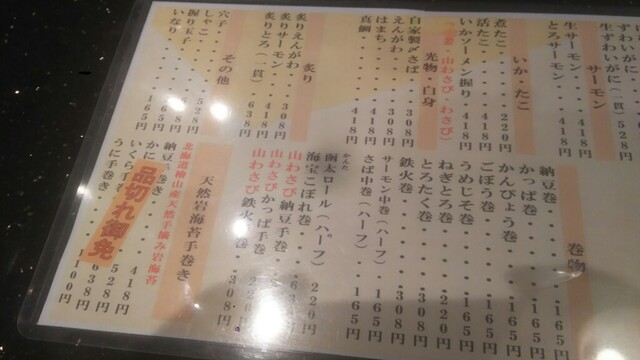 ずわいがに
生ずわいがに(一貫)528円
サーモン
生サーモン・・・418円
とろサーモン・・・418円
いか・たこ
煮たこ・・・220円
活たこ・・・418円
いかソーメン握り・・418円
山わさび・わさび)
光物・白身
自家製〆さば・・308円
えんがわ・・・308円
はまち・・・418円
真鯛・・・418円
炙り
炙りえんがわ・・308円
炙りサーモン・・418円
炙りとろ(一貫)・・638円
その他
穴子・・・528円
しゃこ
握り玉子・・・165円
いなり・・・165円
巻物
納豆巻・・・165円
かっぱ巻・・・165円
かんぴょう巻・・・165円
ごぼう巻・・・165円
うめじそ巻・・・165円
ねぎとろ巻・・・220円
とろたく巻・・・308円
鉄火巻・・・308円
サーモン中巻(ハーフ)・・165円
さば中巻(ハーフ)・・165円
函太ロール(ハーフ)
かんた
海宝こぼれ巻・・220円
山わさび納豆手巻・・
山わさびかっぱ手巻・・220円
山わさび鉄火巻・・308円
天然岩海苔手巻き
北海道檜山産天然手摘み岩海苔
納豆手巻き・・・418円
かに手巻き・・・528円
いくら手巻き・・638円
うに手巻き・・・1100円
品切れ御免